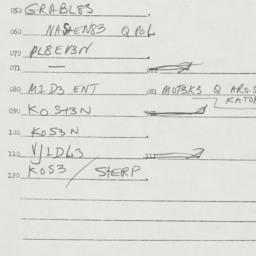 050 GRABL83
060 NASTEN83 Q POL
070 PL8EV3N
071 —
080 MID3 ENT 081 MOT3K3 Q ARO.S
KATO
090 KOST3N
100 KOS3N
110 VJLDL3 111
120 KOS3 / STERP